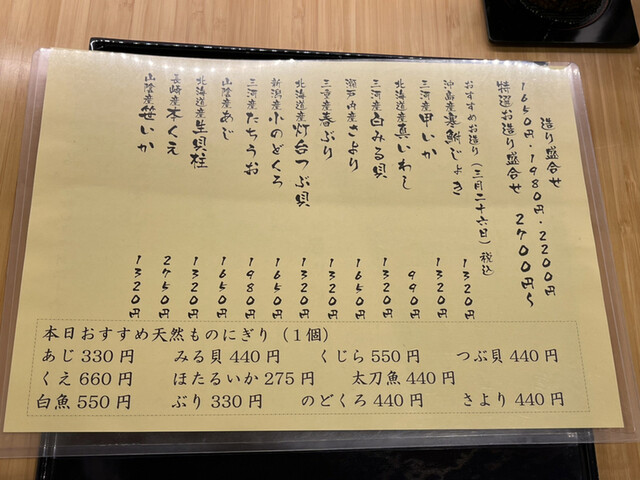 造り盛合せ
1650円・1980円・2200円
特選お造り盛合せ 2700円〜
おすすめお造り(三月二十六日)税込
沖島産寒鮒じょき 1320円
三河産甲いか 1320円
北海道産真いわし 990円
三河産白みる貝 1320円
瀬戸内産さより 1650円
三重産春ぶり 1320円
北海道産灯台つぶ貝 1320円
新潟産小のどくろ 1650円
三河産たちうお 1980円
山陰産あじ 1650円
北海道産生貝柱 1320円
長崎産本くえ 2750円
山陰産笹いか 1320円
本日おすすめ天然ものにぎり(1個)
あじ 330 円 みる貝 440 円 くじら 550 円 つぶ貝 440 円
くえ 660 円 ほたるいか 275 円 太刀魚 440 円
白魚 550 円 ぶり 330 円 のどくろ 440 円 さより 440 円